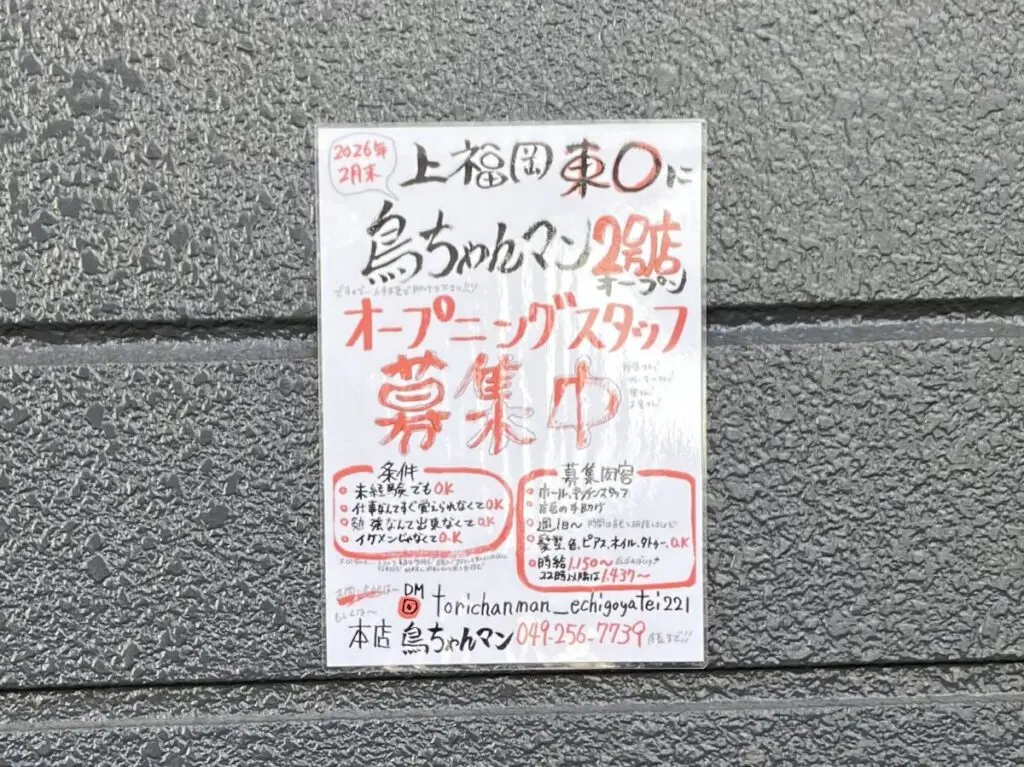 2026年
2月末
上福岡東口に
鳥ちゃんマン2号店
オープン
オープニングスタッフ
募集中
条件
未経験でもOK
仕事なんてすぐ覚えられなくてOK
勉強なんて出来なくてOK
イケメンじゃなくてO.K
募集内容
ホール、キッチンスタッフ
店長の手助け
週1日〜
髪型、色、ピアス、ネイル、タトゥー、O.K
時給1,150〜
22時以降は1,437〜
DM
torichanman_echigoyatei221
本店 鳥ちゃんマン 049-256-7739